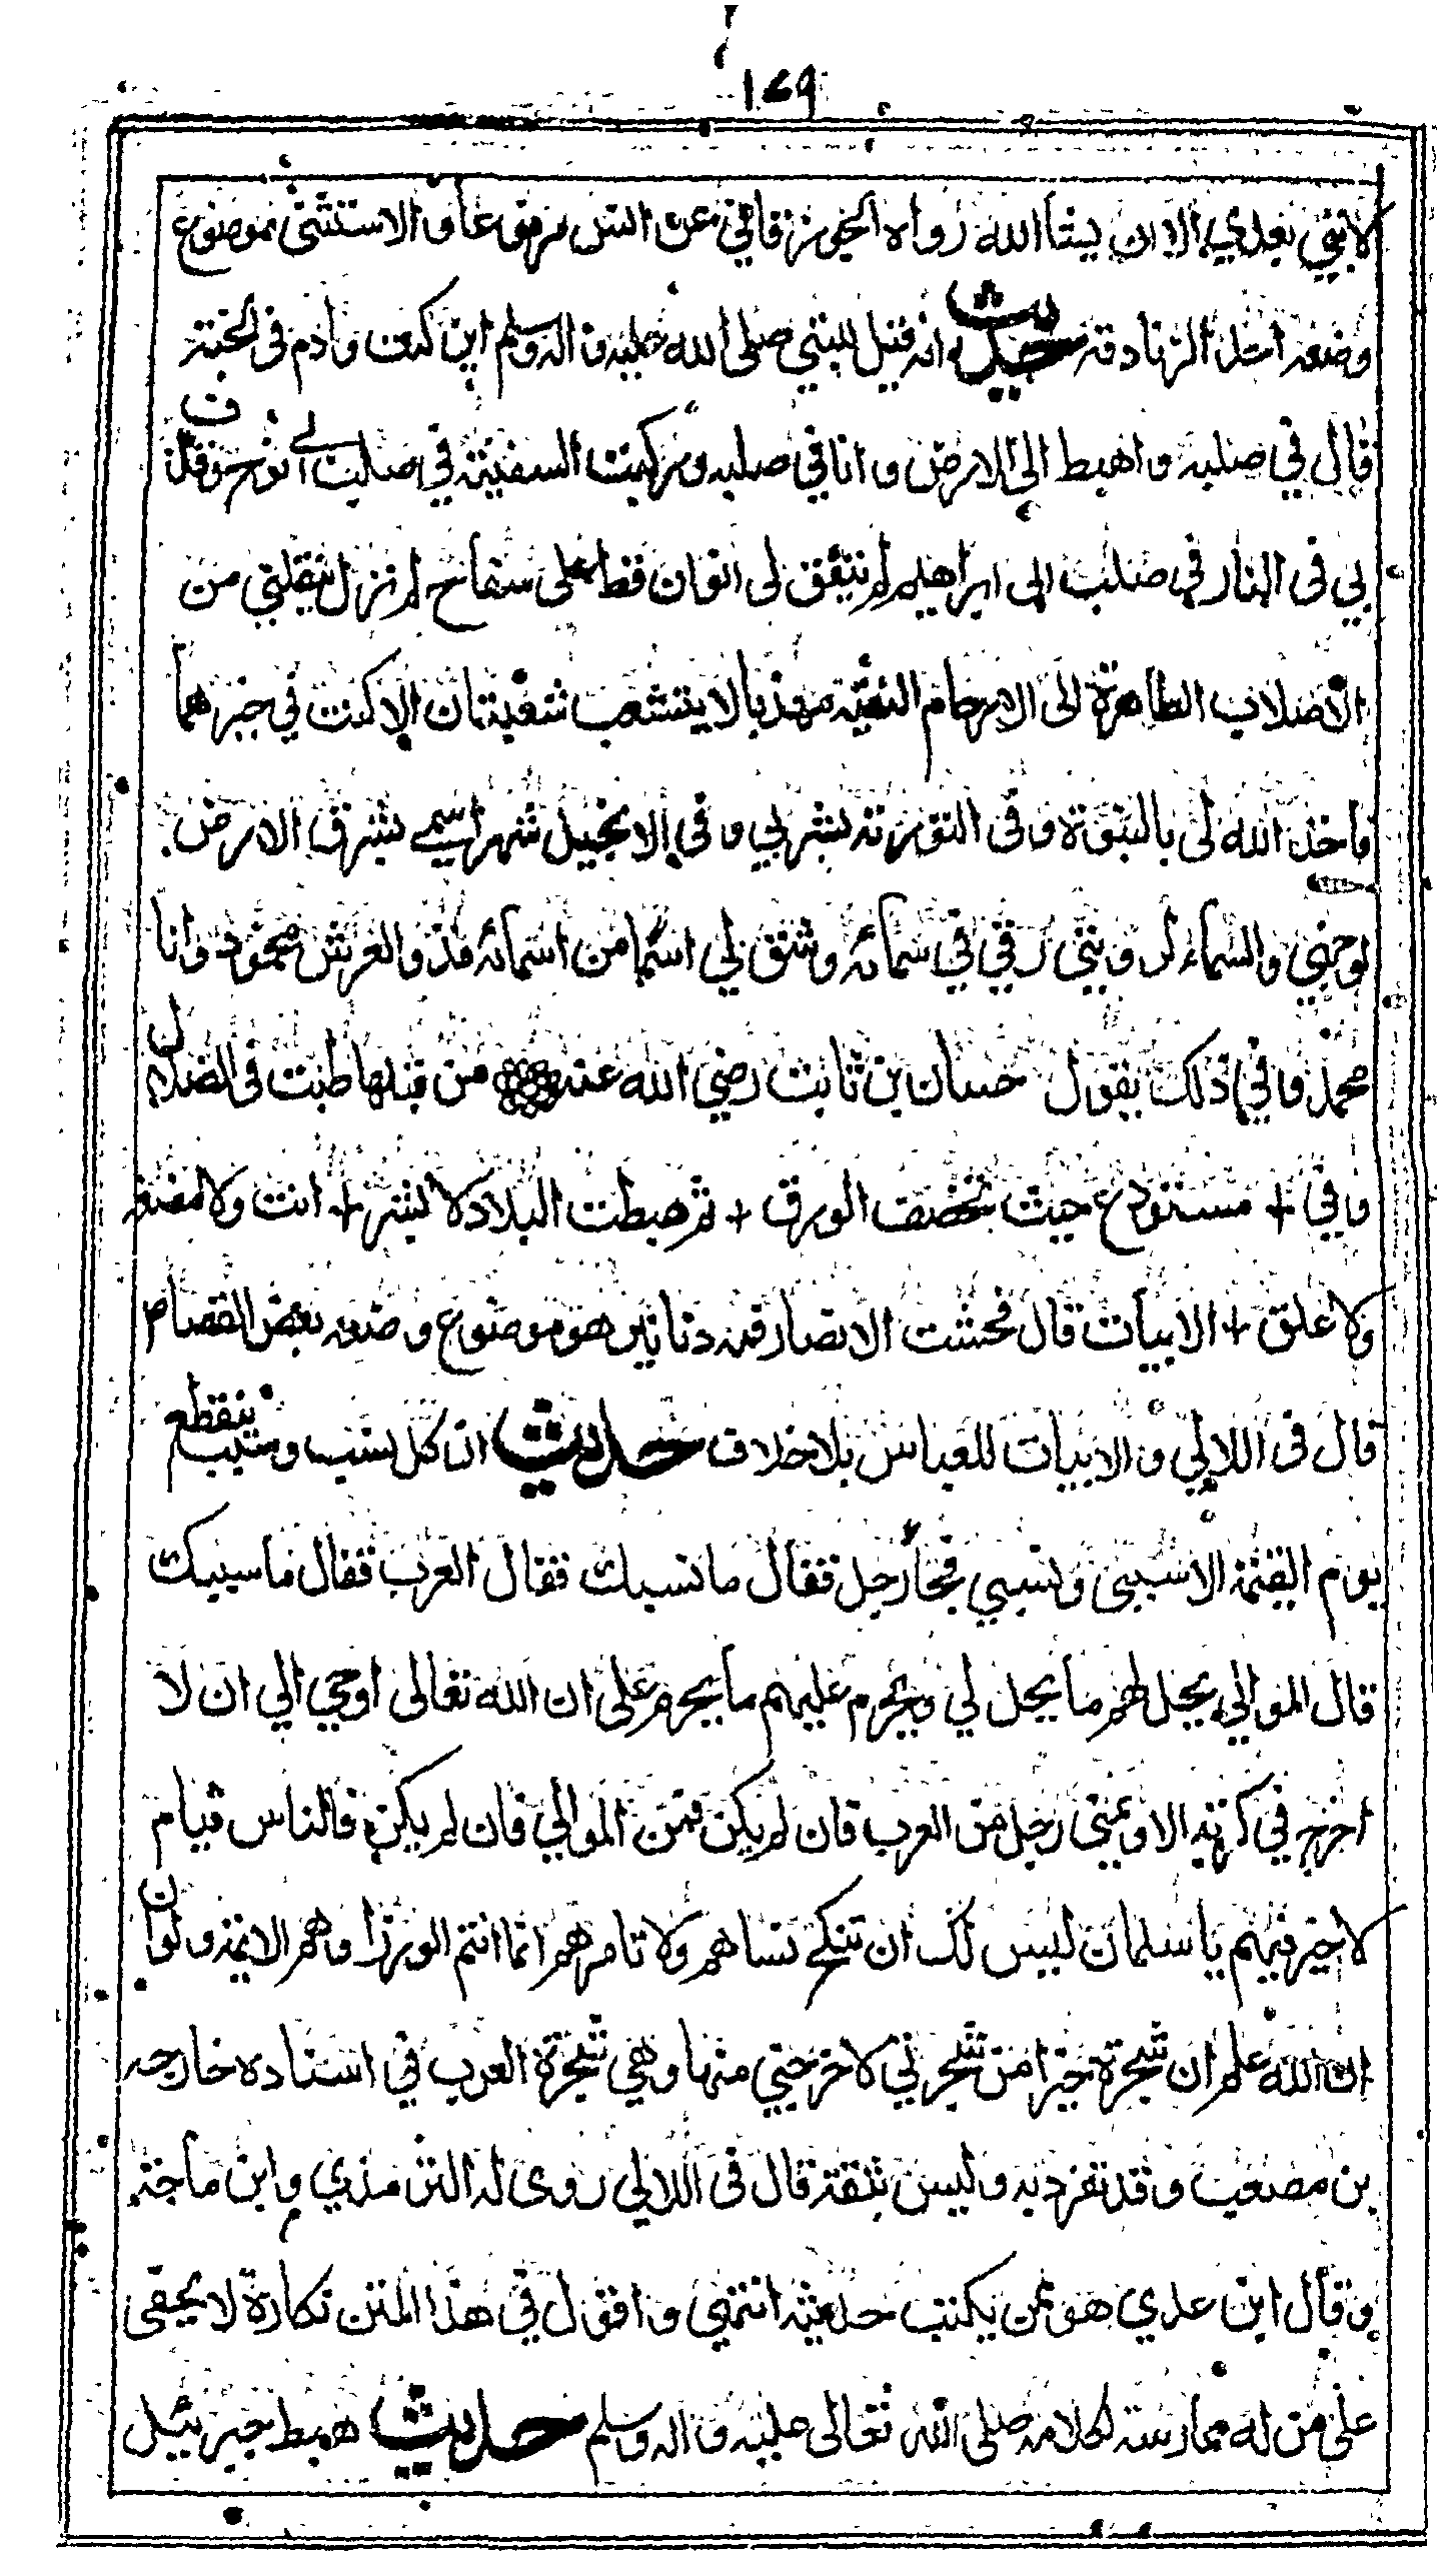 ١٤٩
لا نبي بعدي الا ان يشآ الله رواه الجوزقاني عن انس مرفوعا و الاستثنى موضوع
وضعه احد الزنادقة حديث انه قيل للنبي صلى الله عليه و اله وسلم اين كنت و ادم فى الجنة
قال في صلبه و اهبط الى الارض و انا في صلبه و ركبت السفينة في صلب ابي نوح و قذف
بي فى النار في صلب ابى ابراهيم لم يتفق لى ابوان قط على سفاح لم نزل ينقلني من
الاصلاب الطاهرة الى الارحام النقية مهذبا لا يتشعب شعبتان الا كنت في خيرهما
فاخذ الله لى بالنبوة و فى التورته بشر بي و في الانجيل شهر اسمي بشرق الارض
لوجهي والسماء لرويتي رقي في سمائه وشق لي اسما من اسمائه فذو العرش محمود و انا
محمد و في ذلك يقول حسان بن ثابت رضي الله عنه من قبلها طبت فى الضلال
و في + مستودع حيث تخصف الورق + ثم هبطت البلاد لا بشر + انت ولا مضغة
ولا علق + الابيات قال فحشت الانصار فمه دنانير هو موضوع وضعه بعض القصاص
قال فى اللالي و الابيات للعباس بلا خلاف حديث ان كل نسب و سبب ينقطع
يوم القيمة الا سببى و نسبي فجآ رجل فقال ما نسبك فقال العرب فقال ما سببك
قال الموالي يحل لهم ما يحل لي ويحرم عليهم ما يحرم على ان الله تعالى اوحي الي ان لا
اخرج في كريهة الا و يمينى رجل من العرب فان لم يكن فمن الموالي فان لم يكن فالناس فيام
لا خير فيهم يا سلمان ليس لك ان تنكح نساهم ولا تامرهم انما انتم الوزرا وهم الايمة ولو ان
ان الله علم ان شجرة خيرا من شجرتي لاخرجني منها وهي شجرة العرب في اسناده خارجه
بن مصعب و قد تفرد به و ليس بثقة قال فى اللالي روى له الترمذي و ابن ماجة
و قال ابن عدي هو ممن يكتب حديثه انتهى و اقول في هذا المتن نكارة لا يخفى
على من له ممارسته لكلامه صلى الله تعالى عليه و اله وسلم حديث هبط جبرئيل